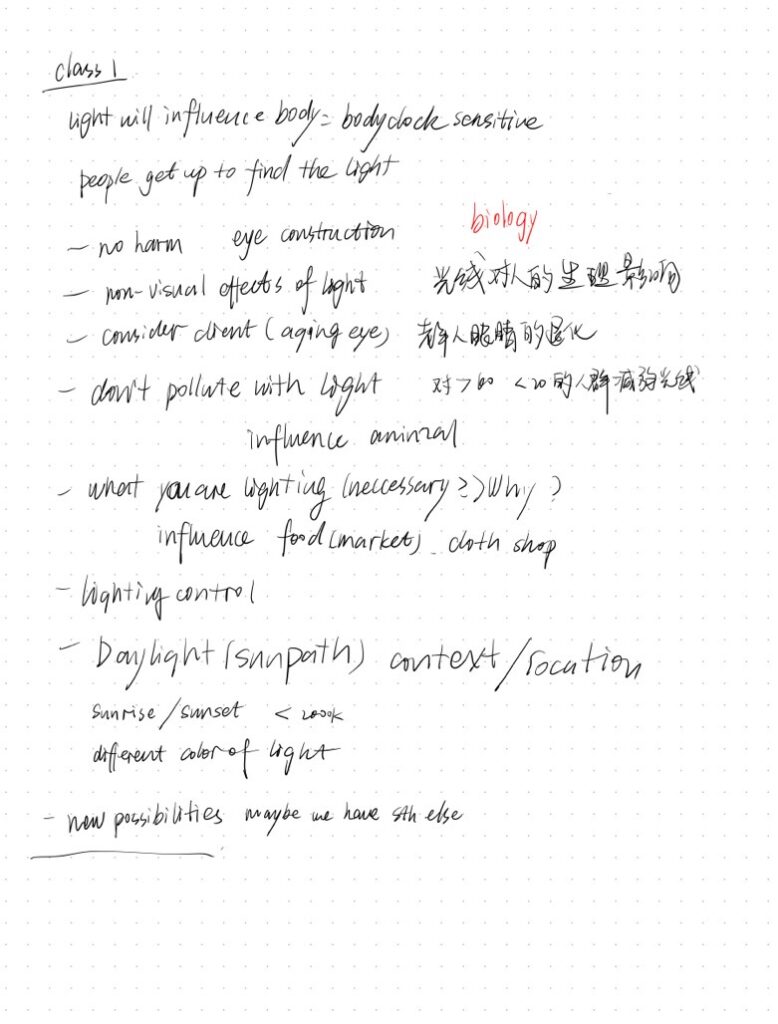 class 1
light will influence body = bodyclock sensitive
people get up to find the light
biology
- no harm eye construction
- non-visual effects of light 光线对人的生理影响
- consider client (aging eye) 老年人眼睛的退化
- don't pollute with light 对>60 <20的人群减弱光线
influence aninral
- what you are lighting (neccessary ≥) Why ?
influence food (market) cloth shop
- lighting control
- Daylight (sunpath) context/location
sunrise/sunset < 2000k
different color of light
- new possibilities maybe we have sth else